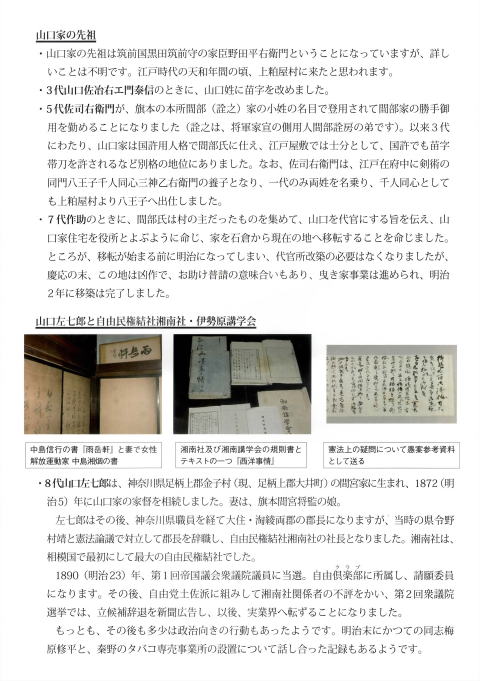 山口家の先祖
・山口家の先祖は筑前国黒田筑前守の家臣野田平右衛門ということになっていますが、詳し
いことは不明です。江戸時代の天和年間の頃、上粕屋村に来たと思われます。
・3代山口佐冶右エ門泰信のときに、山口姓に苗字を改めました。
・5代佐司右衛門が、旗本の本所間部（詮之）家の小姓の名目で登用されて間部家の勝手御
用を勤めることになりました（詮之は、将軍家宣の側用人間部詮房の弟です）。以来3代
にわたり、山口家は国許用人格で間部氏に仕え、江戸屋敷では士分として、国許でも苗字
帯刀を許されるなど別格の地位にありました。なお、佐司右衛門は、江戸在府中に剣術の
同門八王子千人同心三神乙右衛門の養子となり、一代のみ両姓を名乗り、千人同心として
も上粕屋村より八王子へ出仕しました。
・7代作助のときに、間部氏は村の主だったものを集めて、山口を代官にする旨を伝え、山
口家住宅を役所とよぶように命じ、家を石倉から現在の地へ移転することを命じました。
ところが、移転が始まる前に明治になってしまい、代官所改築の必要はなくなりましたが、
慶応の末、この地は凶作で、お助け普請の意味合いもあり、曳き家事業は進められ、明治
2年に移築は完了しました。
山口左七郎と自由民権結社湘南社・伊勢原講学会
雨岳軒
中島信行の書『雨岳軒』と妻で女性
解放運動家 中島湘烟の書
湘南社及び湘南講学会の規則書と
テキストの一つ『西洋事情』
憲法上の疑問について愚案参考資料
として送る
・8代山口左七郎は、神奈川県足柄上郡金子村（現、足柄上郡大井町）の間宮家に生まれ、1872（明
治5）年に山口家の家督を相続しました。妻は、旗本間宮将監の娘。
左七郎はその後、神奈川県職員を経て大住・淘綾両郡の郡長になりますが、当時の県令野
村靖と憲法論議で対立して郡長を辞職し、自由民権結社湘南社の社長となりました。湘南社は、
相模国で最初にして最大の自由民権結社でした。
1890（明治23）年、第1回帝国議会衆議院議員に当選。自由倶楽部クラブに所属し、請願委員
になります。その後、自由党土佐派に組みして湘南社関係者の不評をかい、第2回衆議院
選挙では、立候補辞退を新聞広告し、以後、実業界へ転ずることになりました。
もっとも、その後も多少は政治向きの行動もあったようです。明治末にかつての同志梅
原修平と、秦野のタバコ専売事業所の設置について話し合った記録もあるようです。